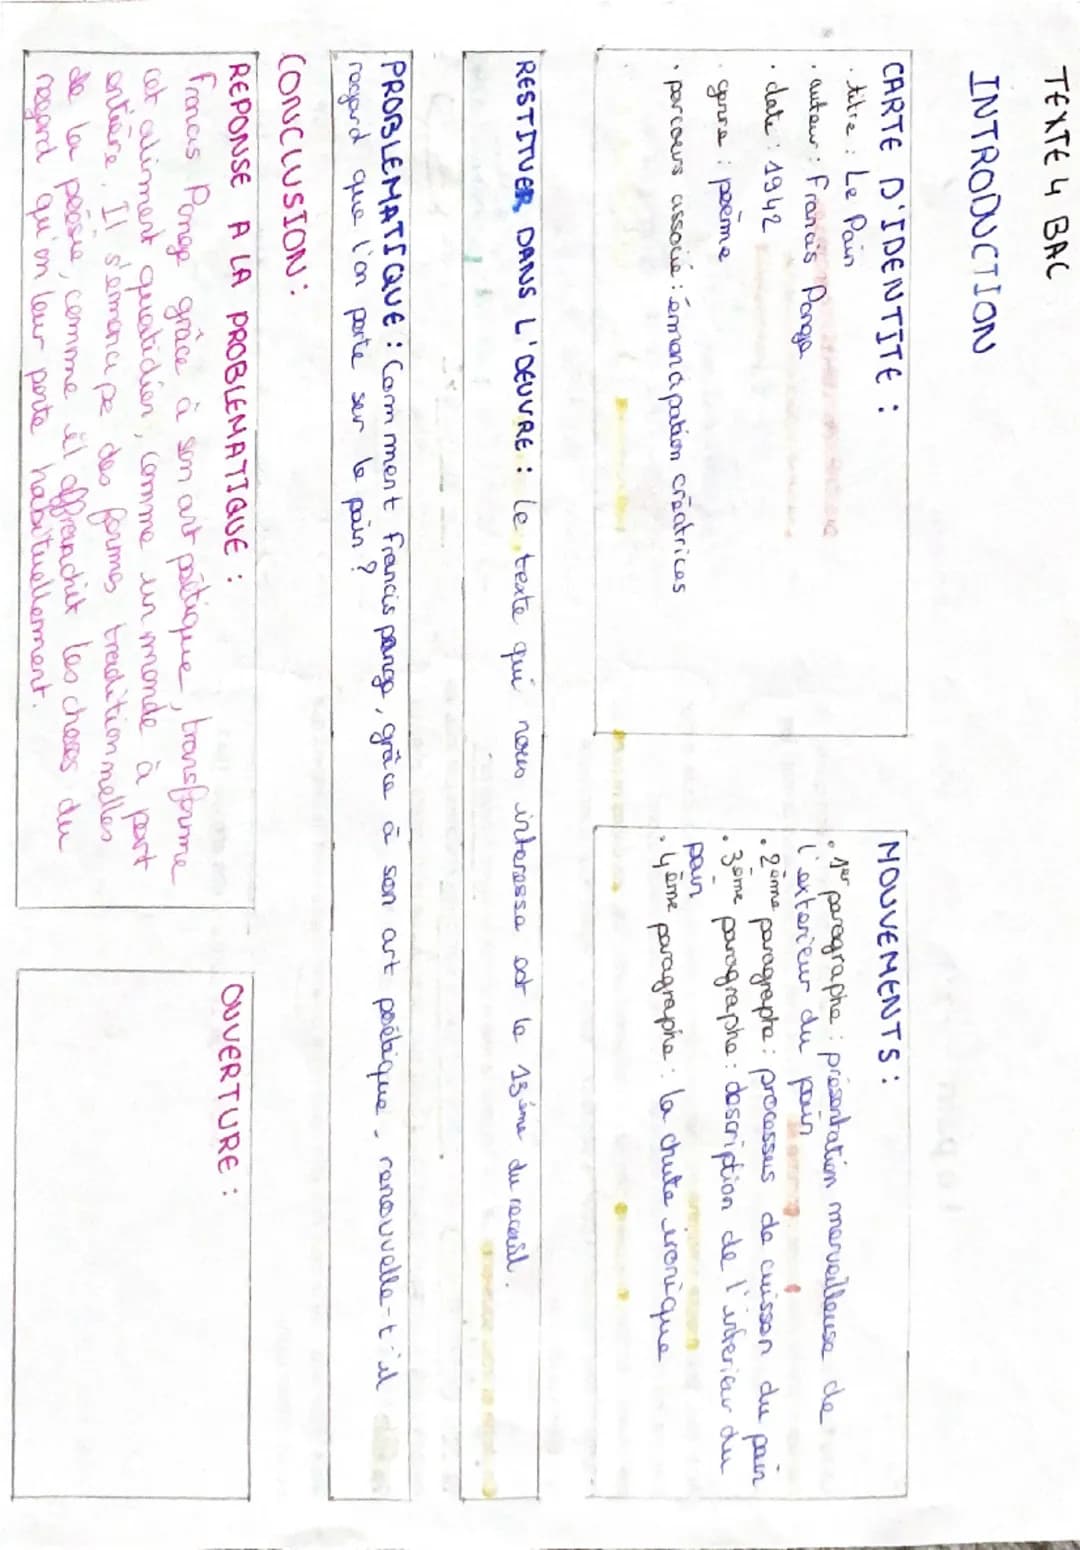 TEXTE 4 BAC
INTRODUCTION
CARTE D'IDENTITE :
· titre : Le Pain
· auteur : Francis Ponge
· date : 1942
· genre : poème
· parcours associé : émancipation créatrices
MOUVEMENTS :
· 1er paragraphe : présentation merveilleuse de
l'exterieur du pain
· 2ème paragraphe : processus de cuisson du pain
· 3ème paragraphe : description de l'interieur du
pain
· 4ème paragraphe : la chute ironique
RESTITUER DANS L'OEUVRE : le texte qui nous interesse est le 13ème du receuil.
PROBLEMATIQUE : Comment francis ponge, grâce à son art poétique, renouvelle-t'il
regard que l'on porte sur le pain ?
CONCLUSION :
REPONSE A LA PROBLEMATIQUE :
Francis Ponge grâce à son art poétique, transforme
cet aliment quotidien, comme un monde à part
entière. Il s'émancipe des formes traditionnelles
de la poésie, comme il affranchit les choses du
regard qu'on leur porte habituellement.
OUVERTURE :